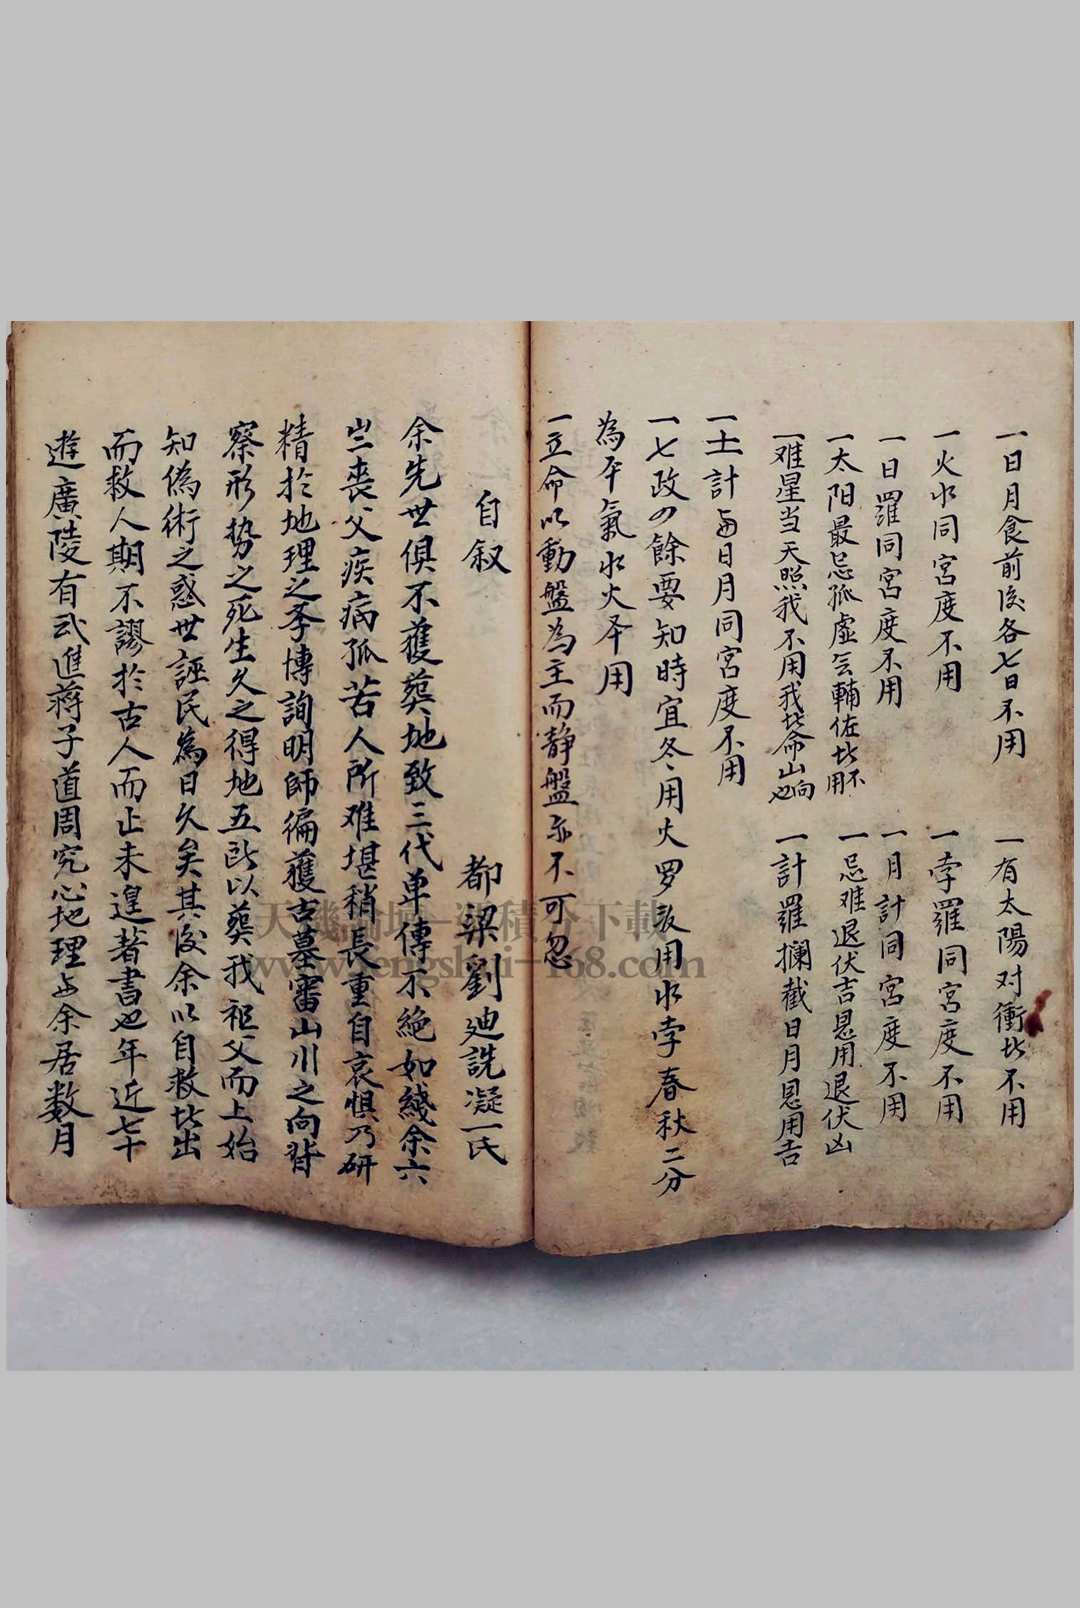 一日月食前後各七日不用
一有太陽对衝此不用
一火水同宮度不用
一孛羅同宮度不用
一日羅同宮度不用
一月計同宮度不用
一太阳最忌孤虛会輔佐此不用
一忌难退伏吉恩用退伏凶
一难星当天照我不用我此命山向也
一計羅攔截日月恩用吉
一土計与日月同宮度不用
一七政四餘要知時宜冬用火罗敌用水孛春秋二分
為平氣水火卒用
一立命以動盤為主而静盤亦不可忽
自叙
都梁劉廸詵凝一氏
余先世俱不獲葬地致三代单傳不絶如綫余六
岁喪父疾病孤苦人所难堪稍長重自哀惧乃研
精於地理之李博詢明師徧獲古墓審山川之向背
察形势之死生久之得地五所以葬我祖父而上始
知偽術之惑世誣民為日久矣其後余以自救此出
而救人期不謬於古人而止未遑著書也年近七十
遊廣陵有武進蒋子道周究心地理与余居数月
天機 下載
www.fengshui-168.com